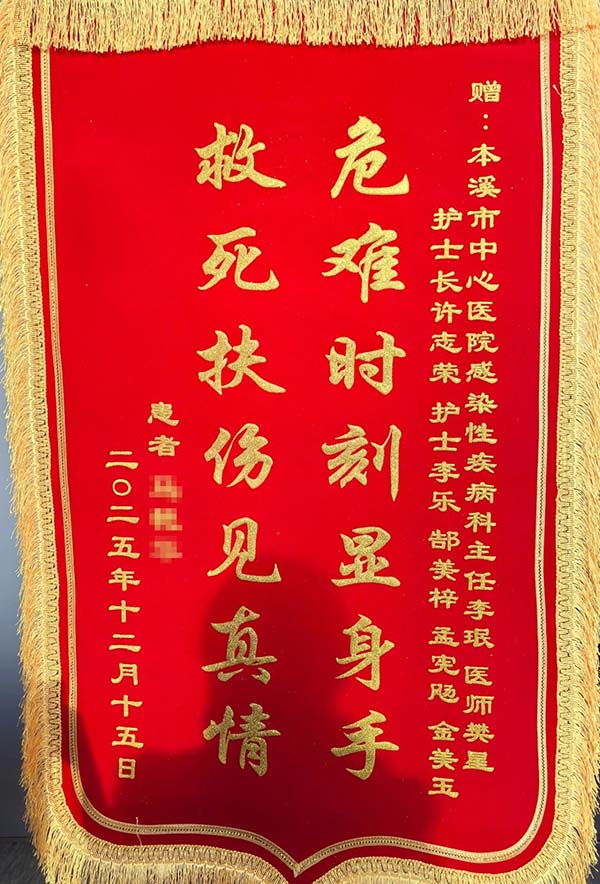 赠：本溪市中心医院感染性疾病科主任李珉 医师樊星
护士长许志荣 护士李乐 郜美梓 孟宪飏 金美玉
危难时刻显身手
救死扶伤见真情
患者
二〇二五年十二月十五日